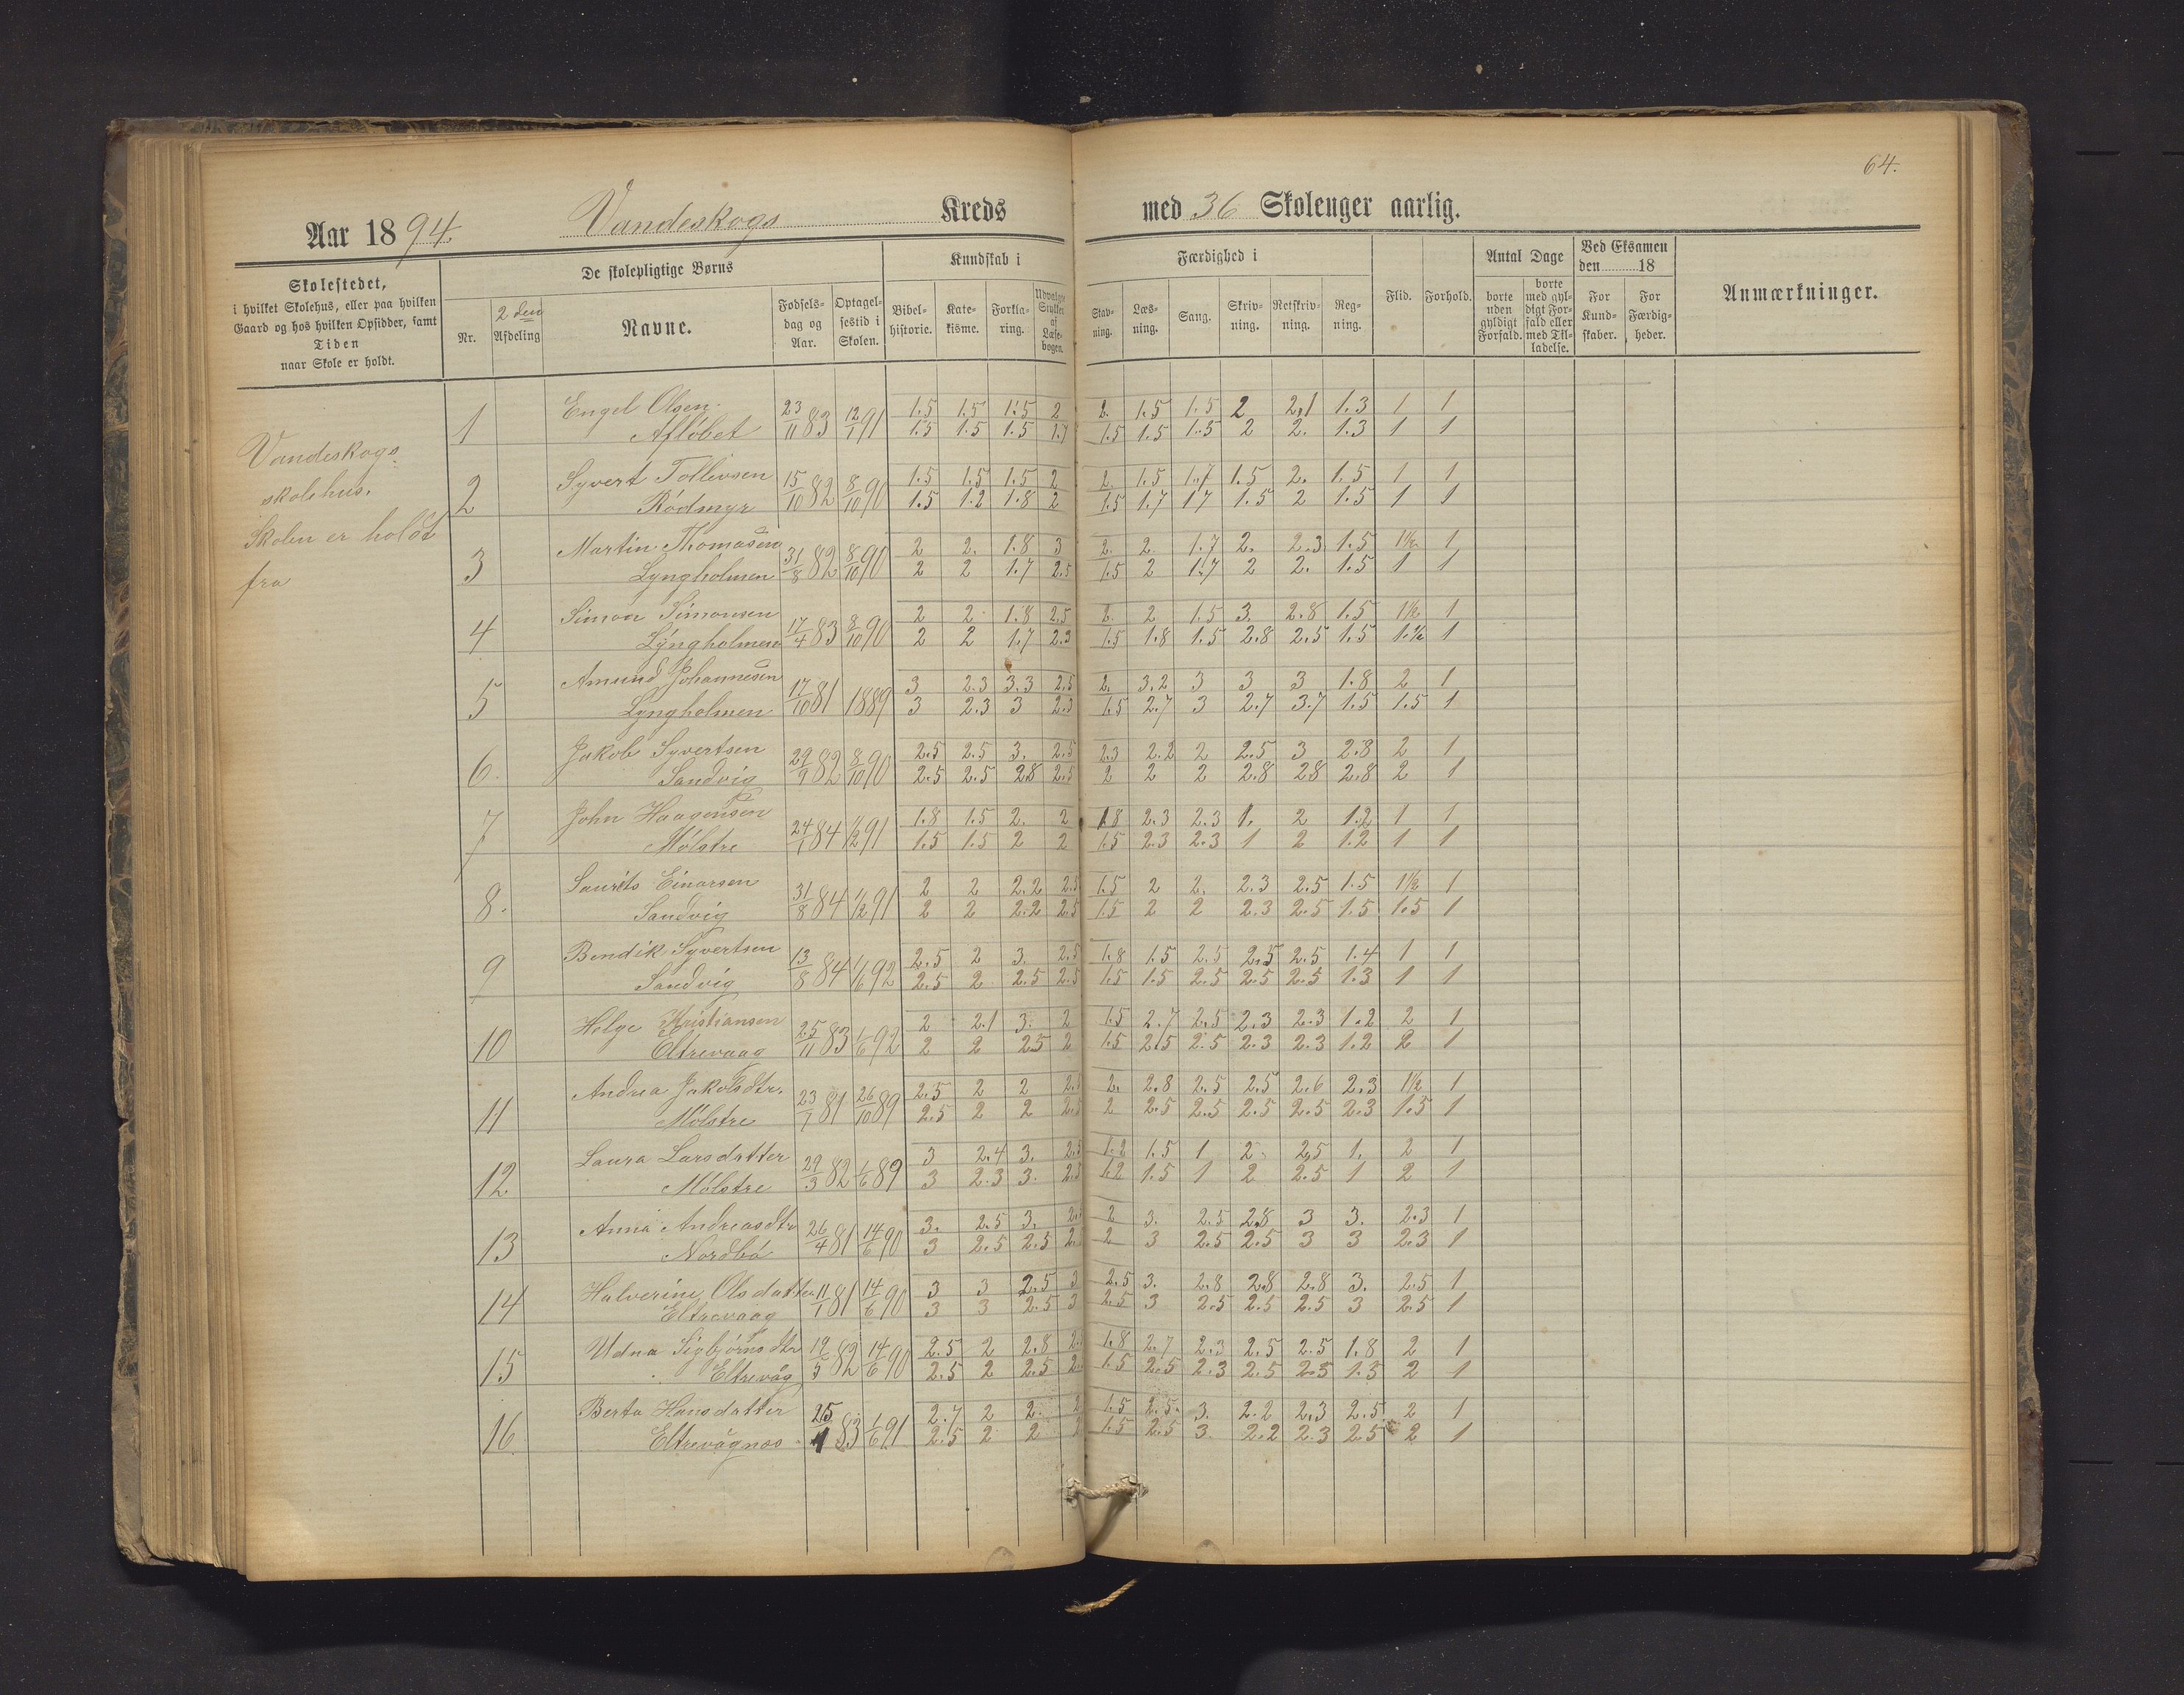 64.
Aar 1894. Vandeskogs Kreds med 36 Skoleuger aarlig.
Skolestedet,
i hvilket Skolehus, eller paa hvilken
Gaard og hos hvilken Opsidder, samt
Tiden
naar Skole er holdt.
De skolepligtige Børns
Nr.
2 den
Afdeling
Navne.
Fødsels-
dag og
Aar.
Optagel-
sestid i
Skolen.
Kundskab i
Bibel-
historie.
Kate-
kisme.
Forkla-
ring.
Udvalgte
Stykker
af
Læse-
bogen.
Færdighed i
Stav-
ning.
Læs-
ning.
Sang.
Skriv-
ning.
Retskriv-
ning.
Reg-
ning.
Flid.
Forhold.
Antal Dage
borte
uden
gyldigt
Forfald.
borte
med gyl-
digt For-
fald eller
med Til-
ladelse.
Ved Eksamen
den 18
For
Kund-
skaber.
For
Færdig-
heder.
Anmærkninger.
Vandeskogs
skolehus.
Skolen er holdt
fra
1 Engel Olsen 23/11 83 12/1 91 1.5 1.5 1.5 2 2. 1.5 1.5 2 2,1 1.3 1 1
Afløbet 1.5 1.5 1.5 1.7 1.5 1.5 1.5 2 2. 1.3 1 1
2 Syvert Tollevsen 15/10 82 8/10 90 1.5 1.5 1.5 2 2. 1.5 1.7 1.5 2. 1.5 1 1
Rødmyr 1.5 1.2 1.8 2 1.5 1.7 17 1.5 2 1.5 1 1
3 Martin Thomasen 31/8 82 8/10 90 2 2. 1.8 3 2. 2. 1.7 2. 2.3 1.5 1½ 1
Lyngholmen 2 2 1.7 2.5 1.5 2 1.7 2 2. 1.5 1 1
4 Simon Simonsen 17/4 83 8/10 90 2 2 1.8 2.5 2. 2 1.5 3. 2.8 1.5 1½ 1
Lyngholmen 2 2 1.7 2.3 1.5 1.8 1.5 2.8 2.5 1.5 1.½ 1
5 Amund Johannesen 17/10 81 1889 3 2.3 3.3 2.5 2. 3.2 3 3 3 1.8 2 1
Lyngholmen 3 2.3 3 2.3 1.5 2.7 3 2.7 3.7 1.5 1.5 1
6. Jakob Syvertsen 29/9 82 8/10 90 2.5 2.5 3. 2.5 2.3 2.2 2 2.5 3 2.8 2 1
Sandvig 2.5 2.5 2.8 2.5 2 2 2 2.8 28 2.8 2 1
7 John Haagensen 24/1 84 1/2 91 1.8 1.5 2. 2 1.8 2.3 2.3 1. 2 1.2 1 1
Mølstre 1.5 1.5 2 2 1.5 2.3 2.3 1 2 1.2 1 1
8. Laurits Einarsen 31/8 84 1/2 91 2 2 2.2 2.5 1.5 2 2. 2.3 2.5 1.5 1½ 1
Sandvig 2 2 2.2 2.5 1.5 2 2 2.3 2.5 1.5 1.5 1
9 Bendik Syvertsen 13/8 84 1/6 92 2.5 2 3. 2.5 1.8 1.5 2.5 2.5 2.5 1.4 1 1
Sandvig 2.5 2 2.5 2.5 1.5 1.5 2.5 2.5 2.5 1.3 1 1
10 Helge Kristiansen 25/11 83 1/6 92 2 2.1 3. 2 1.5 2.7 2.5 2.3 2.3 1.2 2 1
Eltrevaag 2 2 2.5 2 1.5 2.5 2.5 2.3 2.3 1.2 2 1
11 Andrea Jakobsdtr. 23/7 81 26/10 89 2.5 2 2 2.5 2. 2.8 2.5 2.5 2.6 2.3 1½ 1
Mølstre 2.5 2 2 2.5 2 2.5 2.5 2.5 2.5 2.3 1.5 1
12 Laura Larsdatter 29/3 82 1/6 89 3 2.4 3. 2.5 1.2 1.5 1 2 2,5 1. 2 1
Mølstre 3 2.3 3. 2.5 1.2 1.5 1 2 2.5 1 2 1
13 Anna Andreasdtr 26/4 81 14/6 90 3. 2.5 3. 2 3. 2.5 2.8 3 3. 2.3 1
Nordbø 3 2.5 2.5 2 3 2.5 2.5 3 3 2.3 1
14 Halverine Olsdatter 11/1 81 14/6 90 3 3 2.5 3 2.5 3. 2.8 2.8 2.8 3. 2.5 1
Eltrevaag 3 3 2.5 3 2.5 3 2.5 2.5 2.5 3 2.5 1
15 Udna Sigbjørnsdtr 19/5 82 14/6 90 2.5 2 2.8 1.8 2.7 2.3 2.5 2.5 1.8 2 1
Eltrevåg 2.5 2 2.5 1.5 2.5 2.3 2.5 2.5 1.5 2 1
16. Berta Hansdatter 25/1 83 1/6 91 2.7 2 2. 2 1.5 2.5. 3. 2.2 2.3 2.5 2 1
Eltrevågnes 2.5 2 2 2 1.5 2.5 3. 2.2 2.3 2.5 2 1